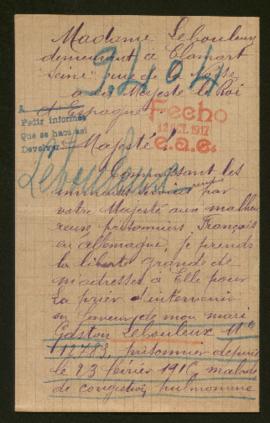 Madame Lebouleux
demeurant à Clamart
Seine rue de
à sa Majesté le Roi
d'Espagne
9404
A
Pedir informes
Que se haga así
Devolver
Fecho
12 OCT. 1917
e.a.e.
Majesté!
Lebouleux
Connaissant les
par
votre Majesté aux malheu
reux prisonniers Français
en Allemagne, je prends
la liberté grande de
m'adresser à Elle pour
la prier d'intervenir
en faveur de mon mari
Gaston Lebouleux Nº
12783, prisonnier depuis
le 23 février 1916, malade
de congestion pulmonaire